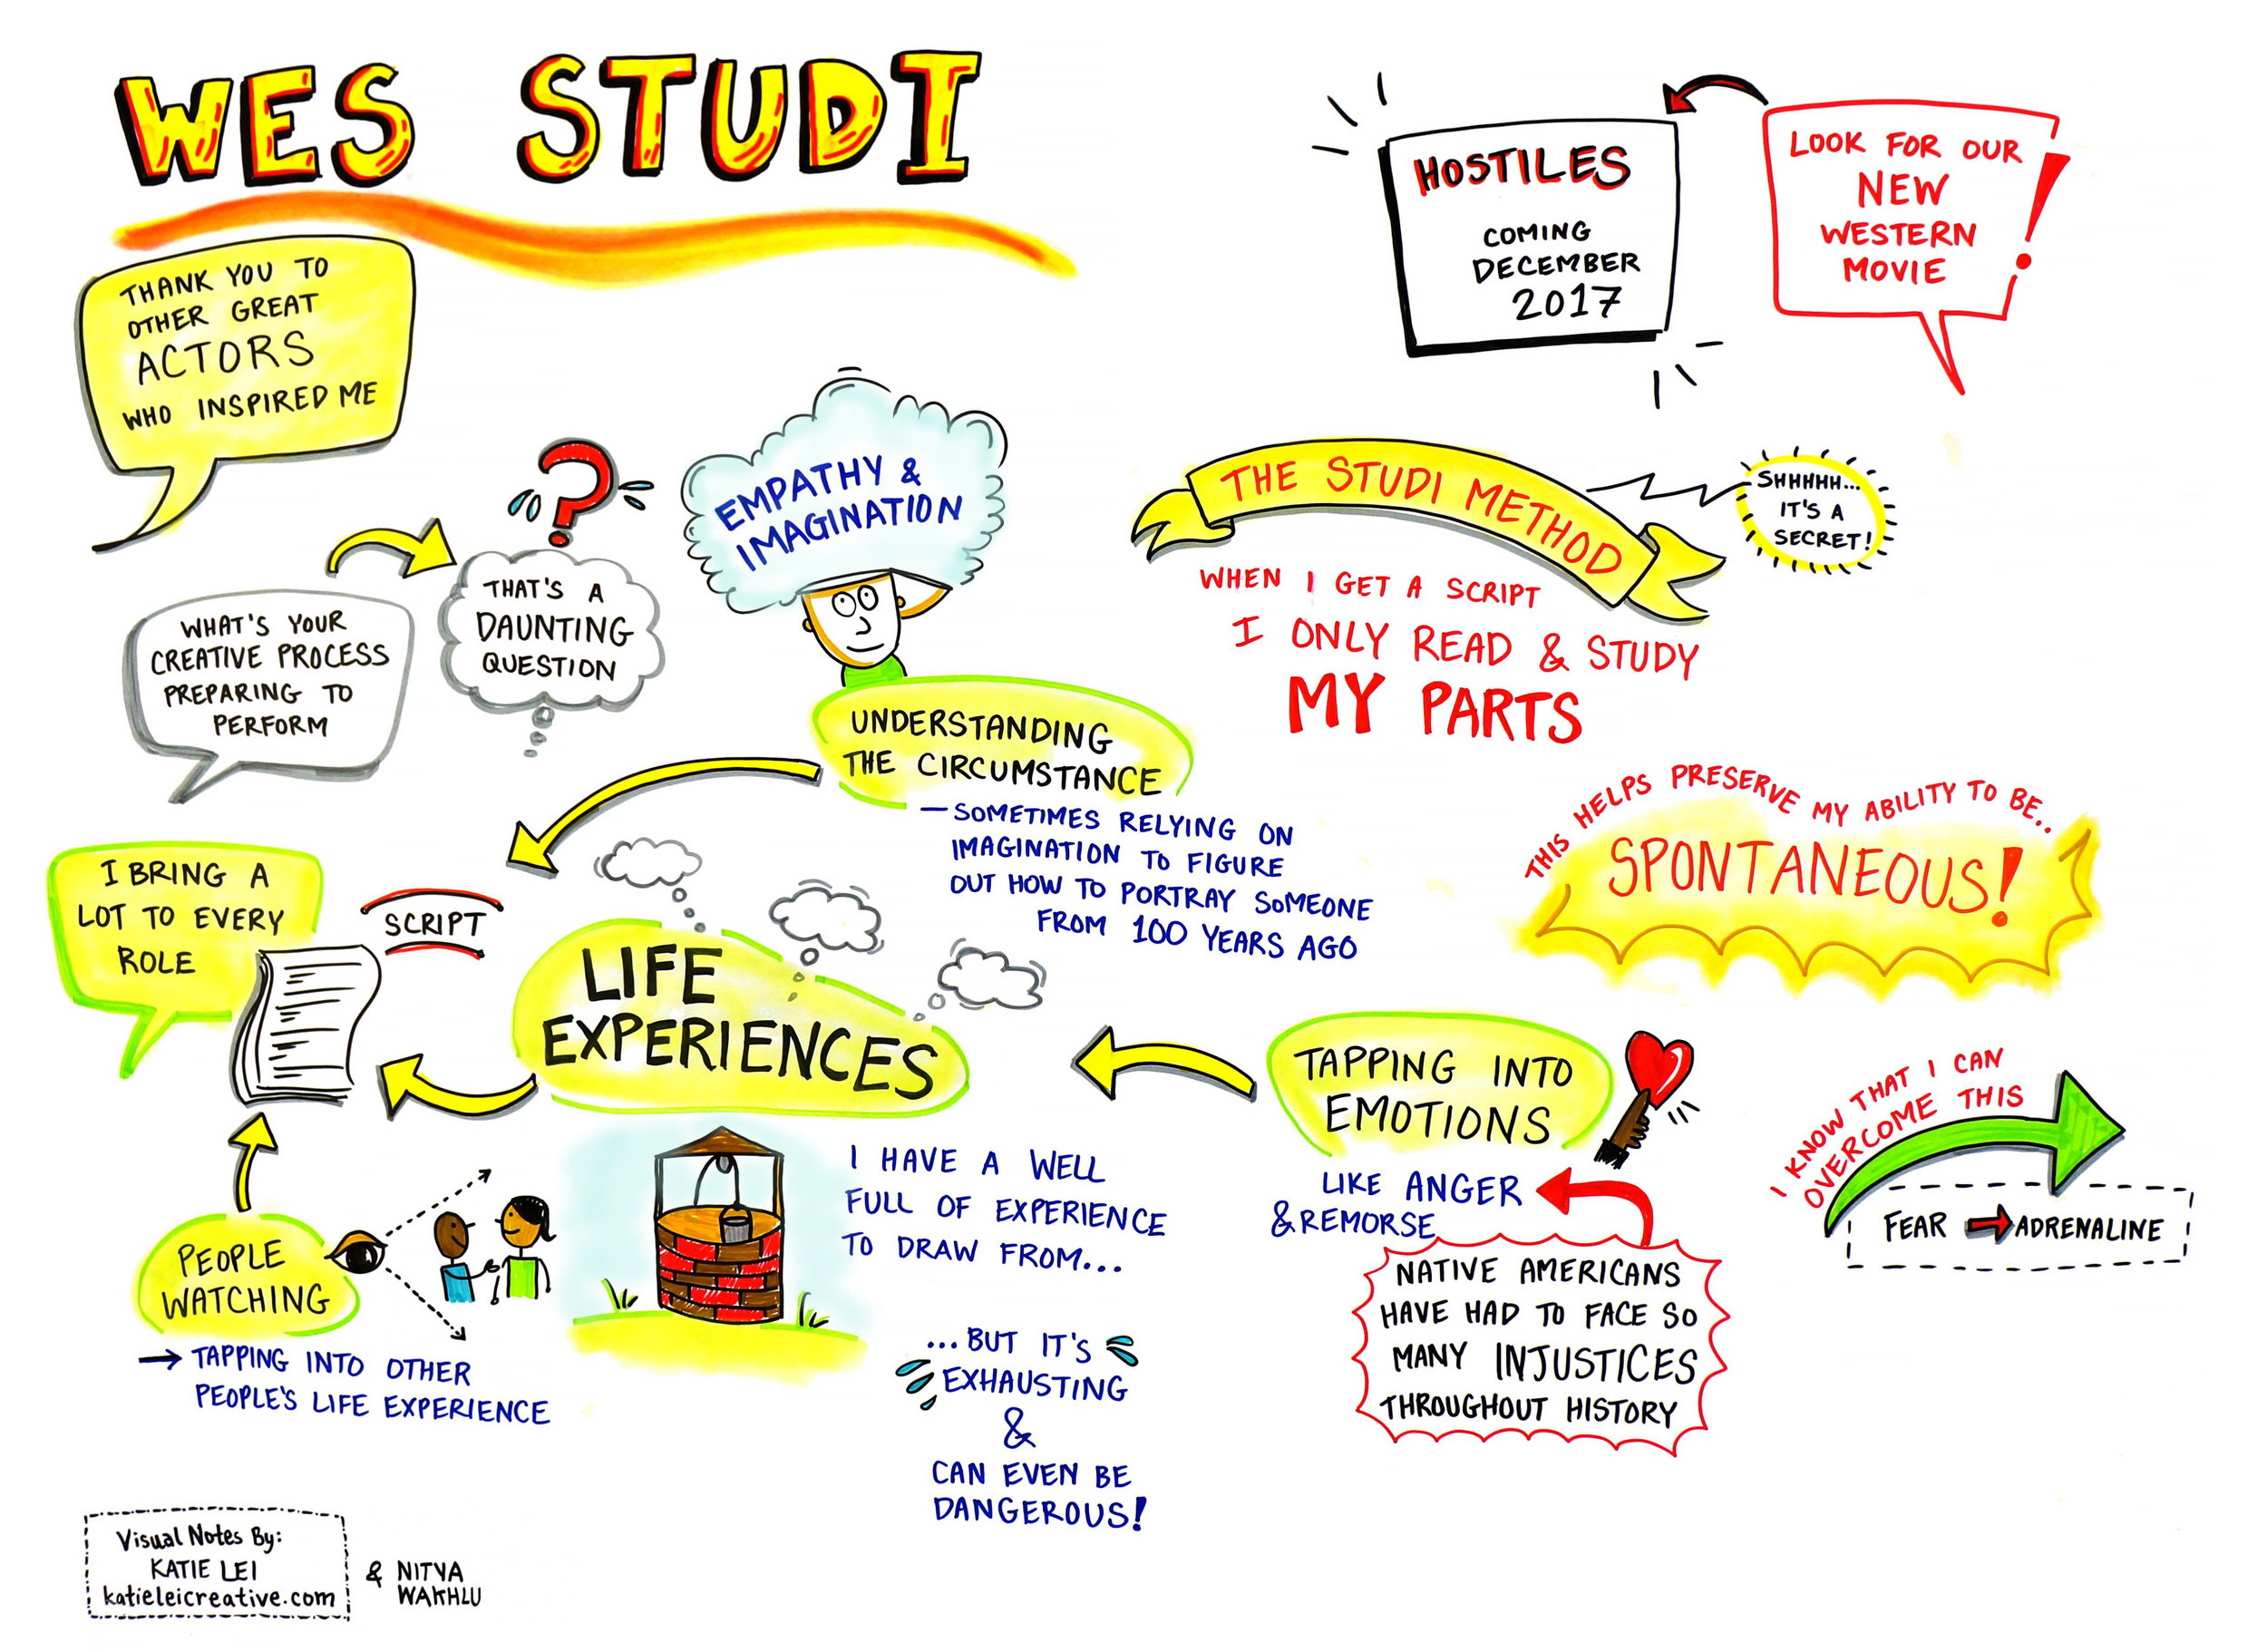 WES STUDI
THANK YOU TO
OTHER GREAT
ACTORS
WHO INSPIRED ME
HOSTILES
COMING
DECEMBER
2017
LOOK FOR OUR
NEW
WESTERN
MOVIE!
WHAT'S YOUR
CREATIVE PROCESS
PREPARING TO
PERFORM
?
THAT'S A
DAUNTING
QUESTION
EMPATHY &
IMAGINATION
UNDERSTANDING
THE CIRCUMSTANCE
– SOMETIMES RELYING ON
IMAGINATION TO FIGURE
OUT HOW TO PORTRAY SOMEONE
FROM 100 YEARS AGO
THE STUDI METHOD
SHHHHH...
IT'S A
SECRET!
WHEN I GET A SCRIPT
I ONLY READ & STUDY
MY PARTS
THIS HELPS PRESERVE MY ABILITY TO BE..
SPONTANEOUS!
I BRING A
LOT TO EVERY
ROLE
SCRIPT
LIFE
EXPERIENCES
I HAVE A WELL
FULL OF EXPERIENCE
TO DRAW FROM...
...BUT IT'S
EXHAUSTING
&
CAN EVEN BE
DANGEROUS!
PEOPLE
WATCHING
→ TAPPING INTO OTHER
PEOPLE'S LIFE EXPERIENCE
TAPPING INTO
EMOTIONS
LIKE ANGER
& REMORSE
NATIVE AMERICANS
HAVE HAD TO FACE SO
MANY INJUSTICES
THROUGHOUT HISTORY
I KNOW THAT I CAN
OVERCOME THIS
FEAR → ADRENALINE
Visual Notes By:
KATIE LEI
katieleicreative.com
& NITYA
WAKHLU